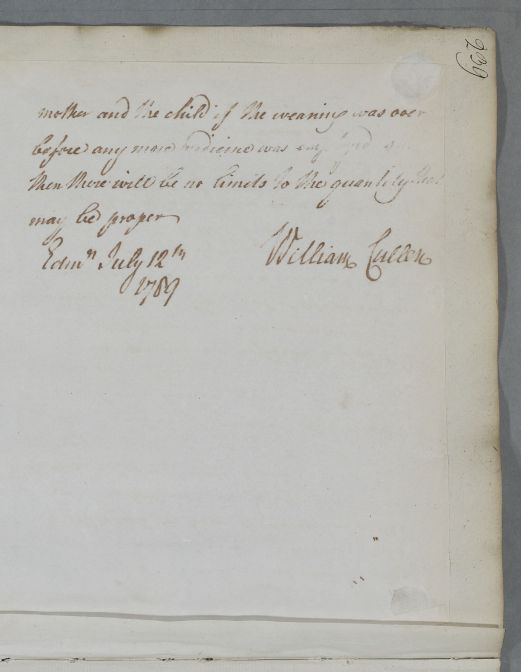 239
mother and the child if the weaning was over
before any more medicine was employed and
then there will be no limits to the quantity that
may be proper
Edinr. July 12th
William Cullen
1789